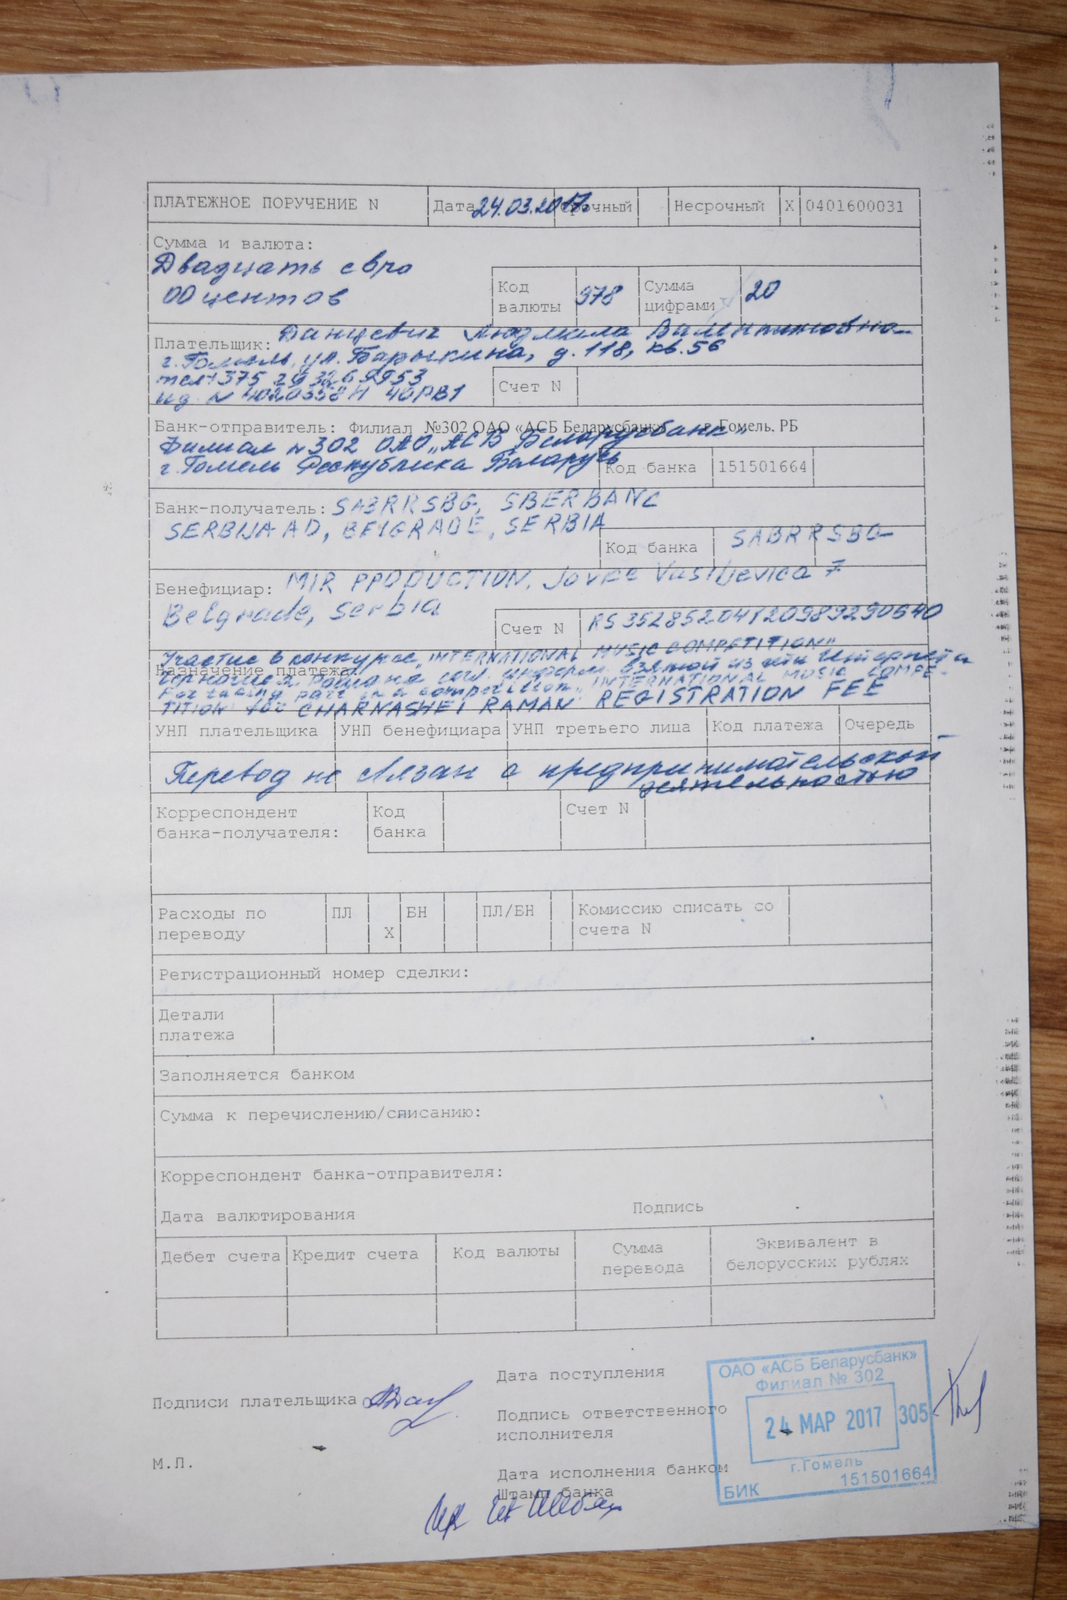 ПЛАТЕЖНОЕ ПОРУЧЕНИЕ N Дата 24.03.2017 Срочный Несрочный X 0401600031
Сумма и валюта:
Двадцать евро
00 центов
Код валюты 978 Сумма цифрами 20
Плательщик: Данцевич Людмила Валентиновна
г. Гомель, ул. Барыкина, д. 118, кв. 56
тел +375 29 3269953
ид. N 4020358H 40PB1 Счет N
Банк-отправитель: Филиал №302 ОАО «АСБ Беларусбанк» г. Гомель. РБ
Филиал N 302 ОАО „АСБ Беларусбанк"
г. Гомель Республика Беларусь Код банка 151501664
Банк-получатель: SABRRSBG, SBERBANC
SERBIJA AD, BELGRADE, SERBIA
Код банка SABRRSBG
Бенефициар: MIR PPODUCTION, Jovke Vasiljevica 7
Belgrade, Serbia
Счет N RS35285204120989290540
Участие в конкурсе „INTERNATIONAL MUSIC COMPETITION"
Назначение платежа:
For taking part in a competition „INTERNATIONAL MUSIC COMPE-
TITION" for CHARNASHEI RAMAN REGISTRATION FEE
УНП плательщика УНП бенефициара УНП третьего лица Код платежа Очередь
Перевод не связан с предпринимательской
деятельностью
Корреспондент банка-получателя: Код банка Счет N
Расходы по переводу ПЛ X БН ПЛ/БН Комиссию списать со счета N
Регистрационный номер сделки:
Детали платежа
Заполняется банком
Сумма к перечислению/списанию:
Корреспондент банка-отправителя:
Дата валютирования Подпись
Дебет счета Кредит счета Код валюты Сумма перевода Эквивалент в белорусских рублях
Дата поступления
Подписи плательщика
Подпись ответственного исполнителя
М.П.
Дата исполнения банком
Штамп банка
ОАО «АСБ Беларусбанк»
Филиал № 302
24 МАР 2017 305
г.Гомель
БИК 151501664